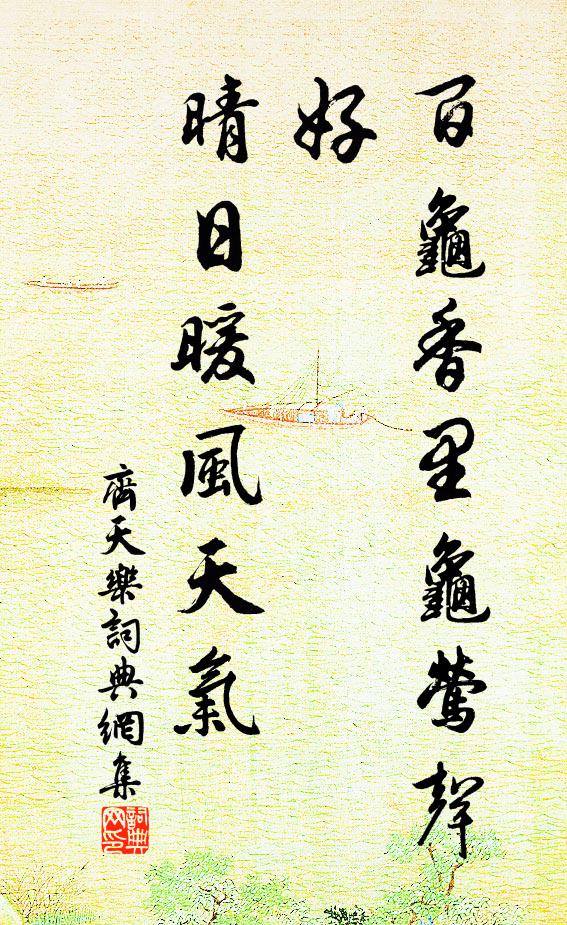 百龜香里龜鶯聲
好
晴日暖風天氣
齊天樂詞典網集
詞典
网印